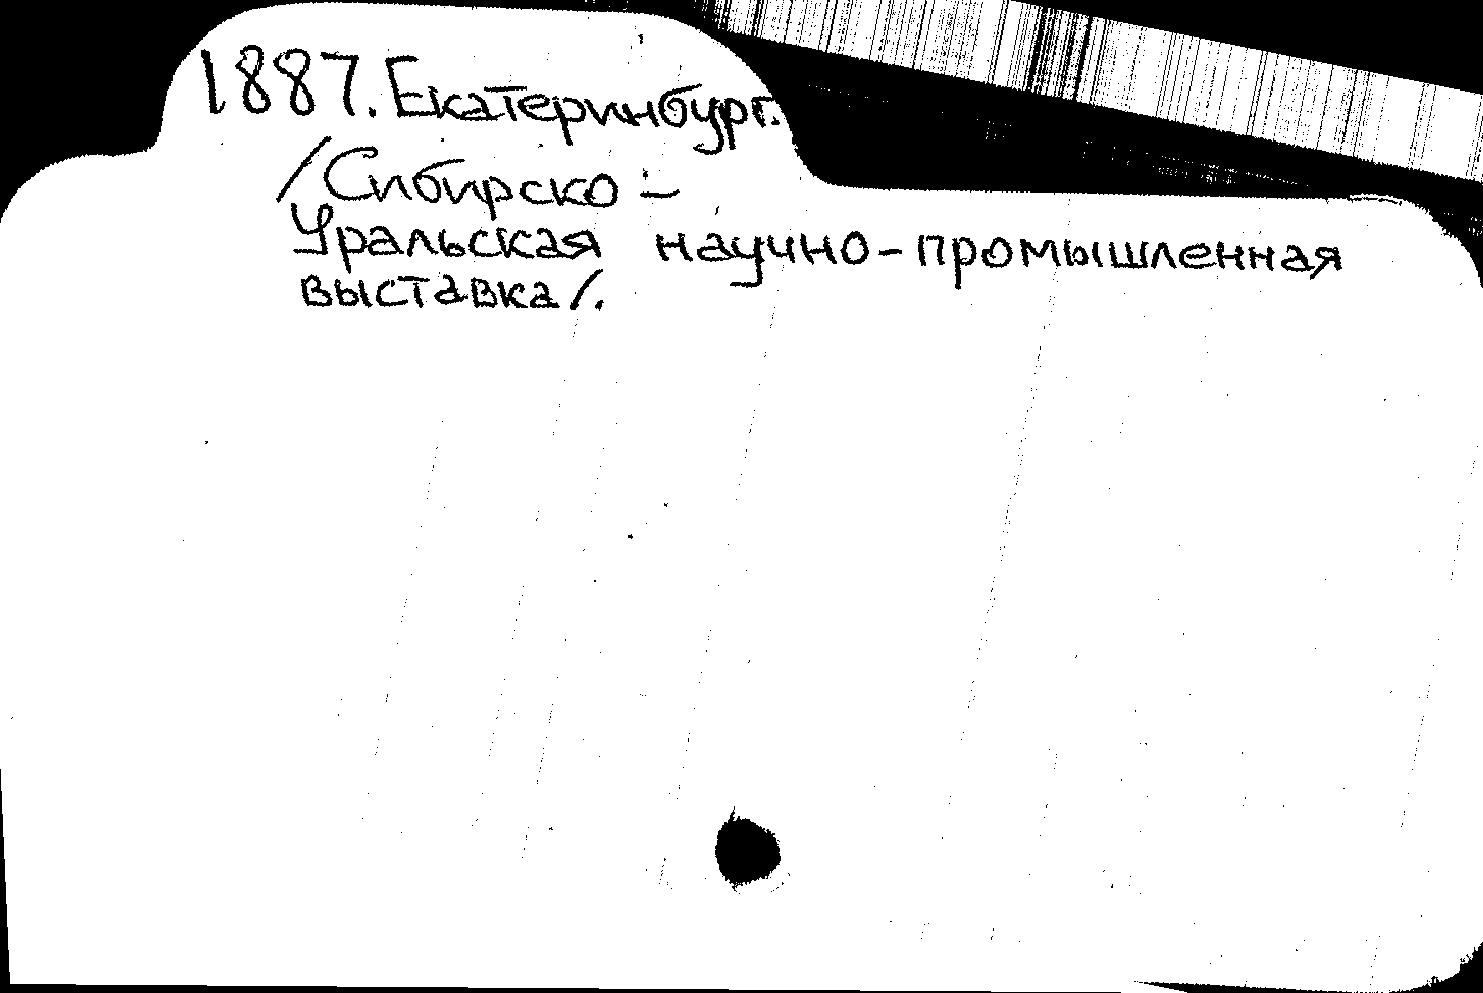 1887. Екатеринбург.
/Сибирско –
Уральская научно-промышленная
выставка/.